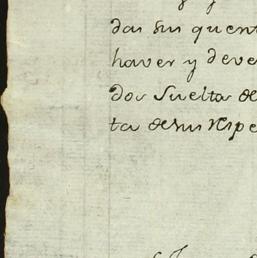 das sus quent
haver y deve
dor Suelta de
ta de sus respe